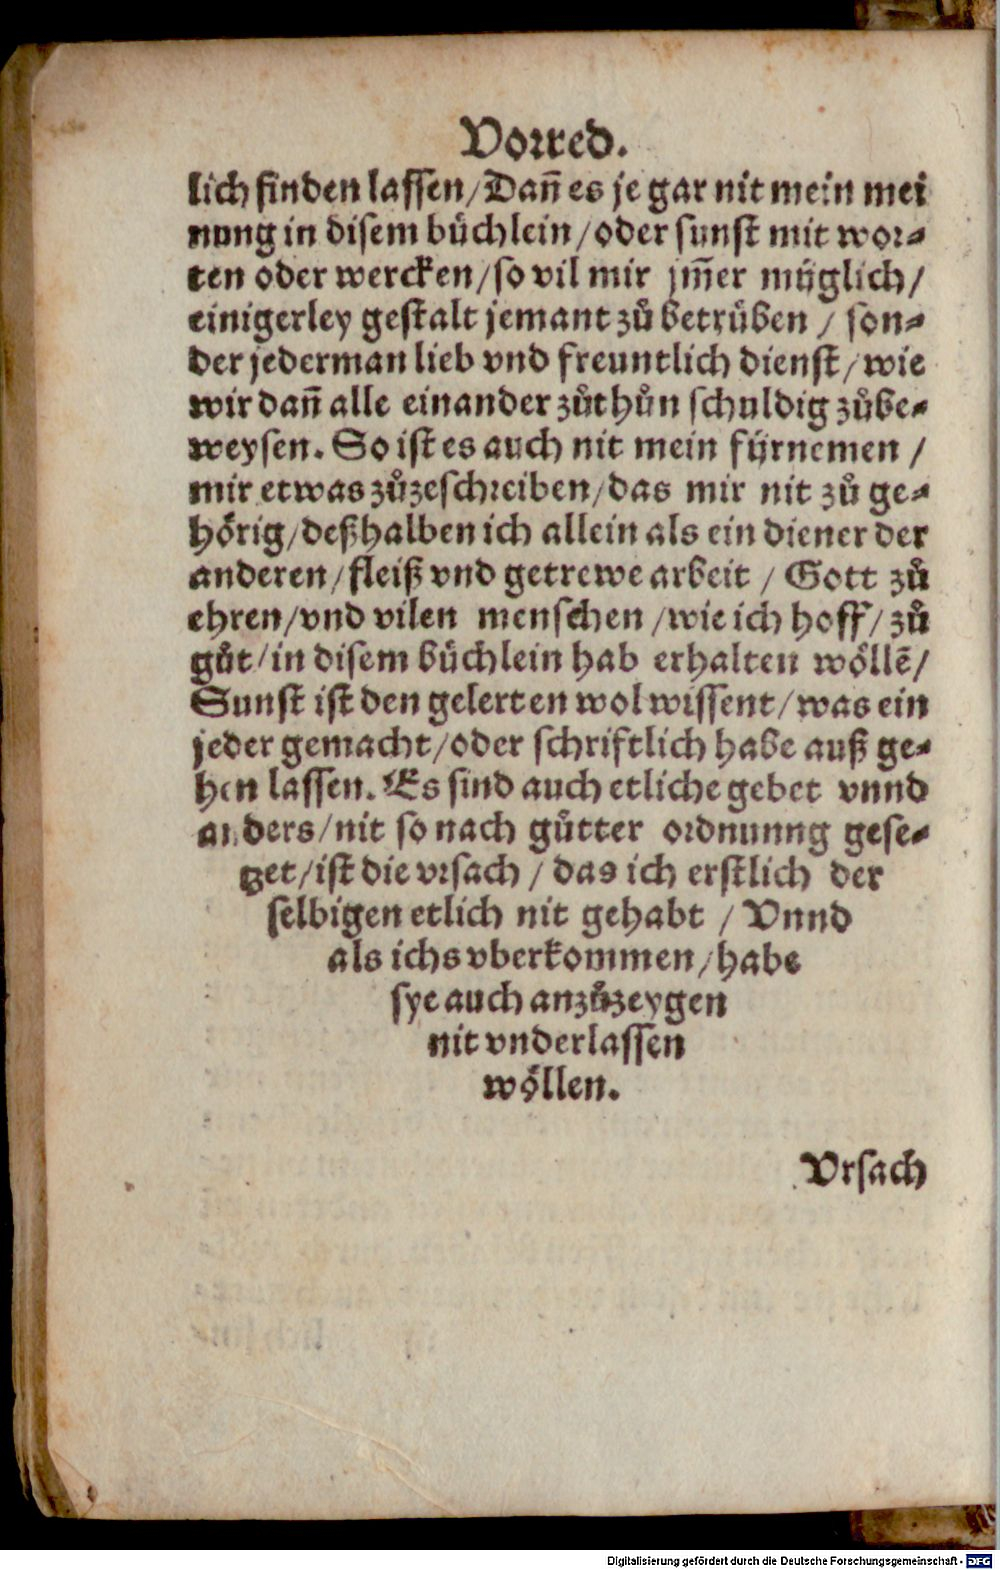 Vorred.
lich finden lassen/Dañ es je gar nit mein mei
nung in disem büchlein/oder sunst mit wor⸗
ten oder wercken/so vil mir jm̃er müglich/
einigerley gestalt jemant zů betrüben / son⸗
der jederman lieb vnd freuntlich dienst/wie
wir dañ alle einander zůthůn schuldig zůbe⸗
weysen. So ist es auch nit mein fürnemen /
mir etwas zůzeschreiben/das mir nit zů ge⸗
hörig/deßhalben ich allein als ein diener der
anderen/fleiß vnd getrewe arbeit / Gott zů
ehren/vnd vilen menschen /wie ich hoff/ zů
gůt/in disem büchlein hab erhalten wöllẽ/
Sunst ist den gelerten wol wissent/was ein
jeder gemacht/oder schriftlich habe auß ge⸗
hen lassen. Es sind auch etliche gebet vnnd
anders/nit so nach gůtter ordnunng gese⸗
tzet/ist die vrsach / das ich erstlich der
selbigen etlich nit gehabt / Vnnd
als ichs vberkommen/habe
sye auch anzůzeygen
nit vnderlassen
wöllen.
Vrsach
Digitalisierung gefördert durch die Deutsche Forschungsgemeinschaft - DFG